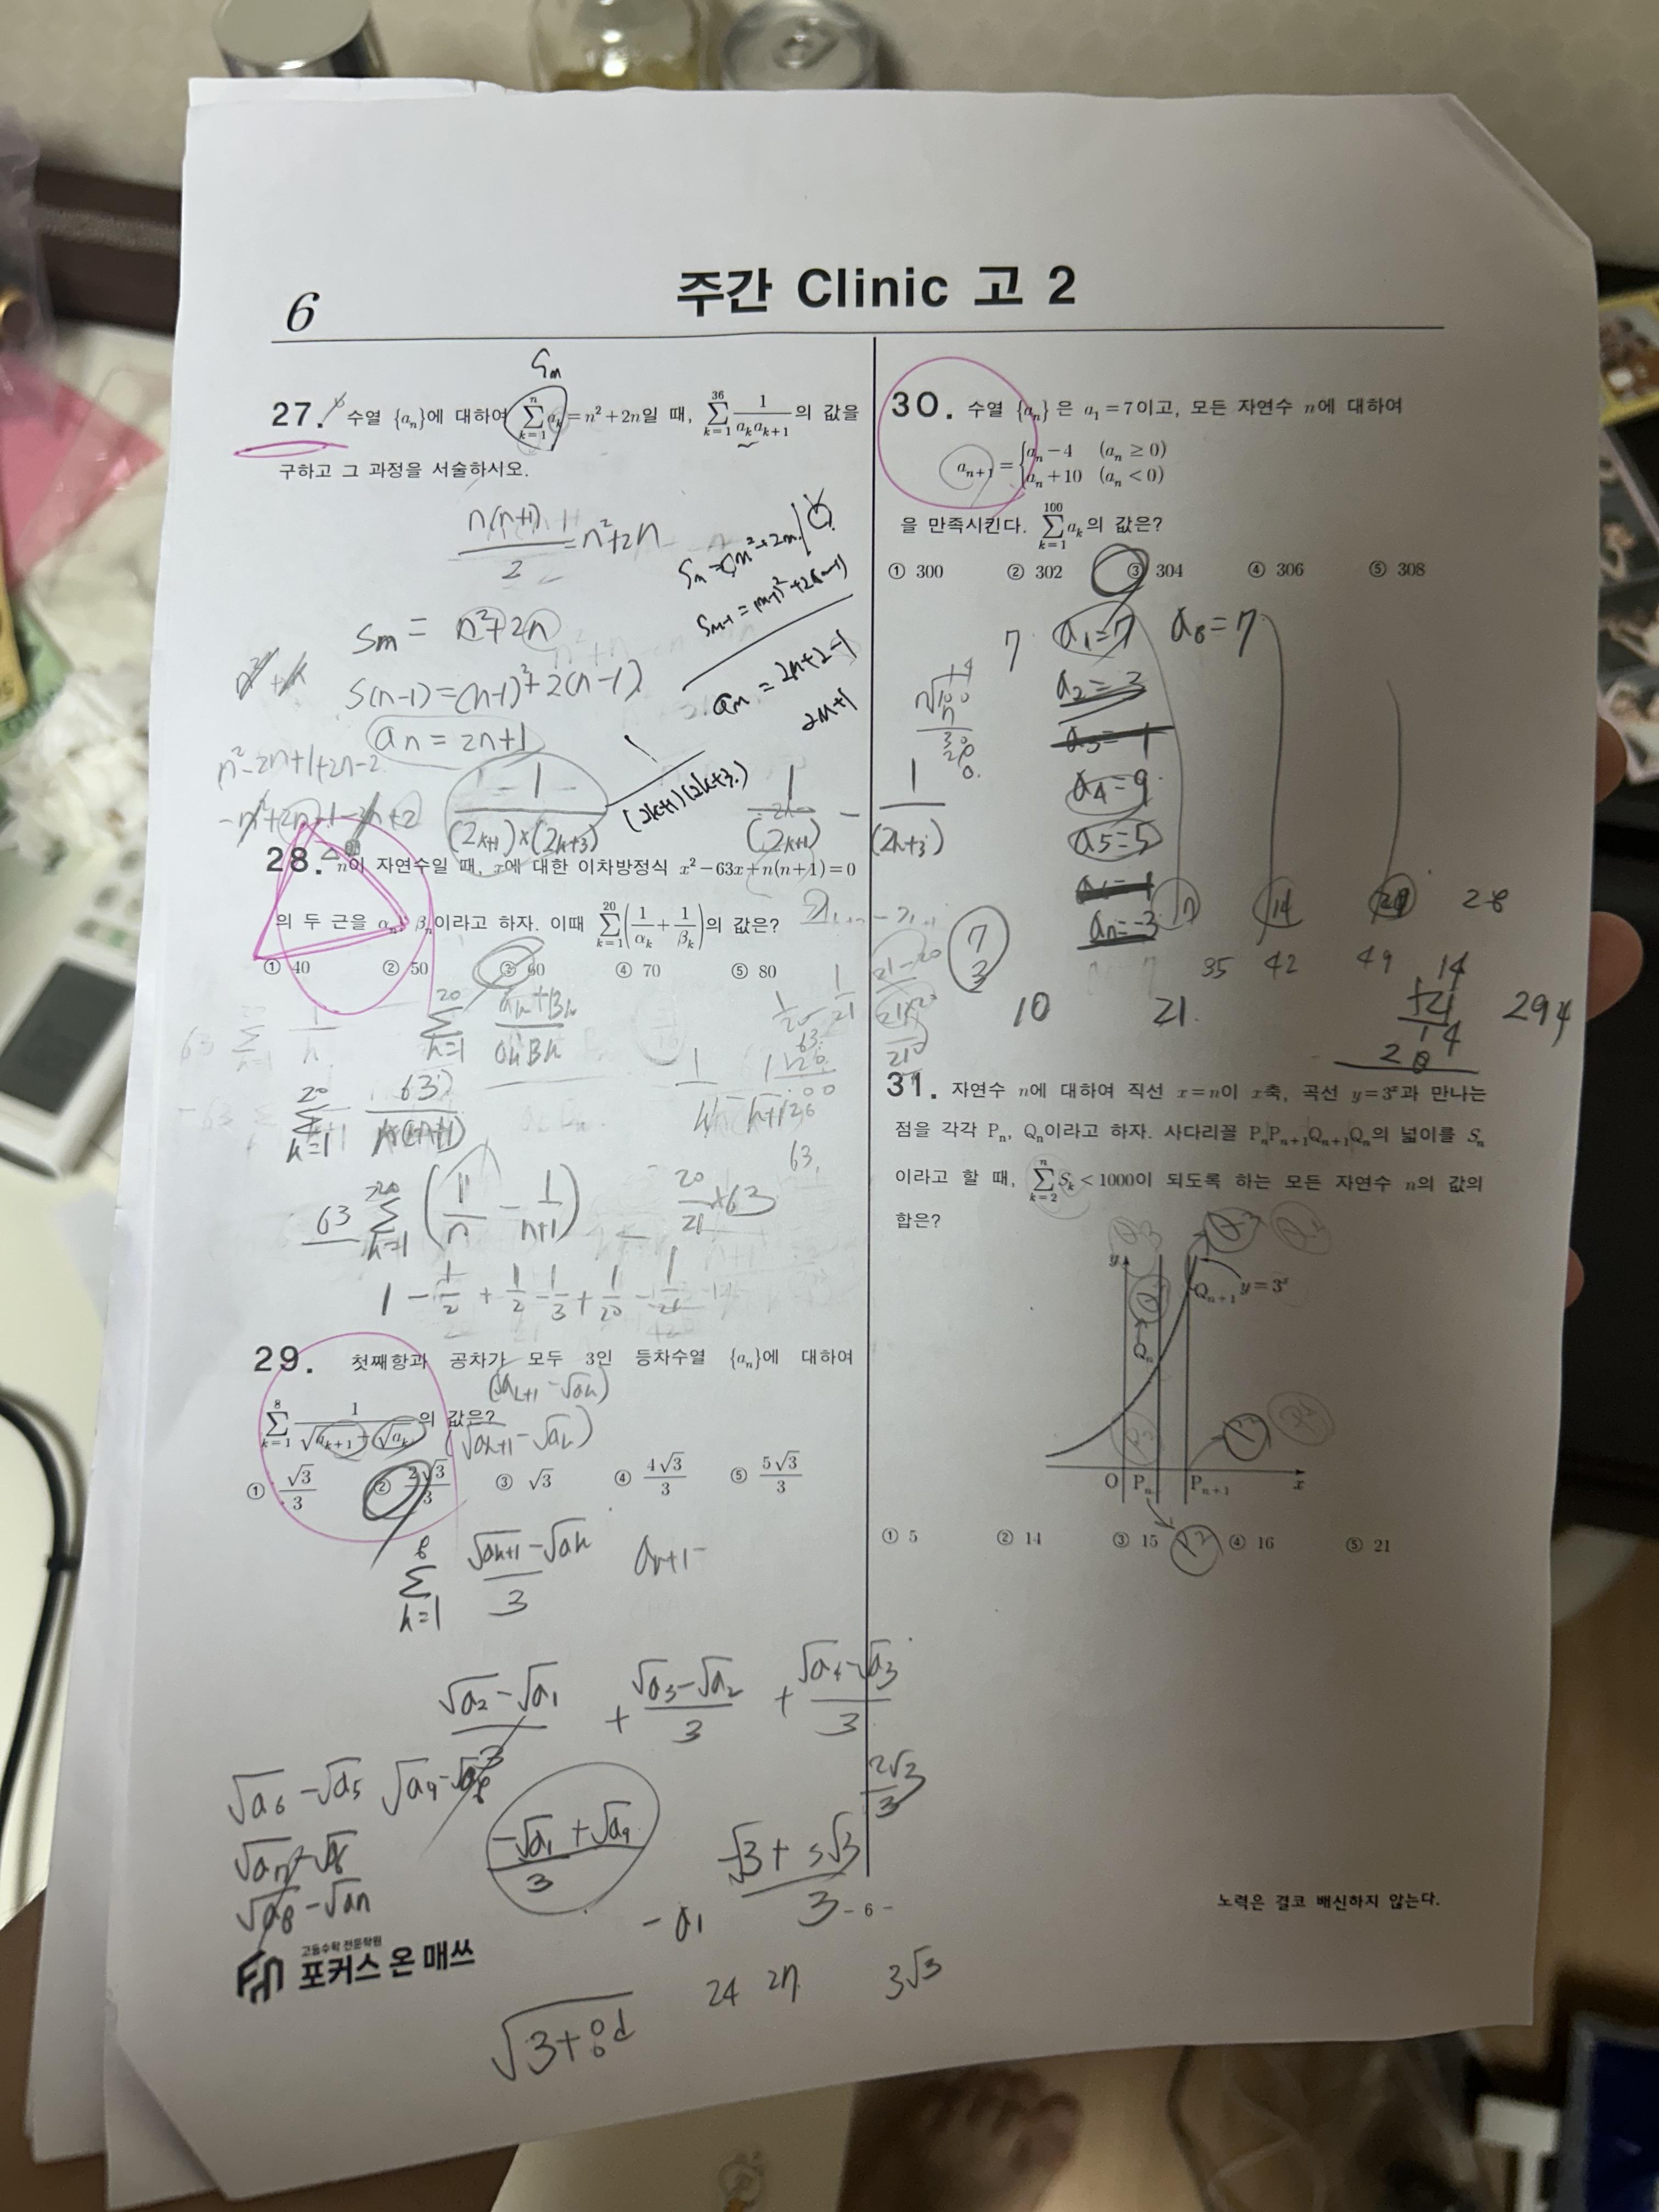 6
주간 Clinic 고 2
Sm
27. 수열 {aₙ}에 대하여 \sum_{k=1}^{n} aₖ = n²+2n일 때, \sum_{k=1}^{36} \frac{1}{aₖaₖ₊₁}의 값을
구하고 그 과정을 서술하시오.
\frac{n(n+1)}{2} = n²+2n
Sm = n²+2n
S(n-1) = (n-1)²+2(n-1)
an = 2n+1
n²-2n+1+2n-2
am = 2n+2-1
2n+1
\frac{1}{(2k+1)×(2k+3)}
\frac{1}{(2k+1)(2k+3)}
\frac{1}{(2k+1)} - \frac{1}{(2k+3)}
28. n이 자연수일 때, x에 대한 이차방정식 x²-63x+n(n+1)=0
의 두 근을 αₙ, βₙ이라고 하자. 이때 \sum_{k=1}^{20} (\frac{1}{αₖ}+\frac{1}{βₖ})의 값은?
① 40 ② 50 ③ 60 ④ 70 ⑤ 80
63 \sum_{k=1}^{20} (\frac{1}{n} - \frac{1}{n+1})
\frac{20}{21}×63
1 - \frac{1}{2} + \frac{1}{2} - \frac{1}{3} + \frac{1}{20} - \frac{1}{21}
29. 첫째항과 공차가 모두 3인 등차수열 {aₙ}에 대하여
(√ak+1 - √ak)
\sum_{k=1}^{8} \frac{1}{\sqrt{aₖ₊₁}+\sqrt{aₖ}}의 값은?
(√ak+1 - √ak)
① \frac{√3}{3} ② \frac{2√3}{3} ③ √3 ④ \frac{4√3}{3} ⑤ \frac{5√3}{3}
\sum_{k=1}^{8} \frac{√ak+1 - √ak}{3}
\frac{√a₂-√a₁}{3} + \frac{√a₃-√a₂}{3} + \frac{√a₄-√a₃}{3}
√a₆-√a₅ √a₉-√a₈
\frac{-√a₁+√a₉}{3}
\frac{2√3}{3}
-a₁
24 27 3√3
√3+8d
고등수학 전문학원
포커스 온 매쓰
30. 수열 {aₙ}은 a₁=7이고, 모든 자연수 n에 대하여
aₙ₊₁ = { aₙ-4 (aₙ≥0)
aₙ+10 (aₙ<0)
을 만족시킨다. \sum_{k=1}^{100} aₖ의 값은?
① 300 ② 302 ③ 304 ④ 306 ⑤ 308
7 a₁=7 a₈=7
a₂=3
a₄=9
a₅=5
7 14 21 28
35 42 49
7
3
10 21 294
31. 자연수 n에 대하여 직선 x=n이 x축, 곡선 y=3ˣ과 만나는
점을 각각 Pₙ, Qₙ이라고 하자. 사다리꼴 PₙPₙ₊₁Qₙ₊₁Qₙ의 넓이를 Sₙ
이라고 할 때, \sum_{k=2}^{n} Sₖ < 1000이 되도록 하는 모든 자연수 n의 값의
합은?
y
Qₙ₊₁ y=3ˣ
Qₙ
O Pₙ Pₙ₊₁ x
① 5 ② 14 ③ 15 ④ 16 ⑤ 21
노력은 결코 배신하지 않는다.
- 6 -